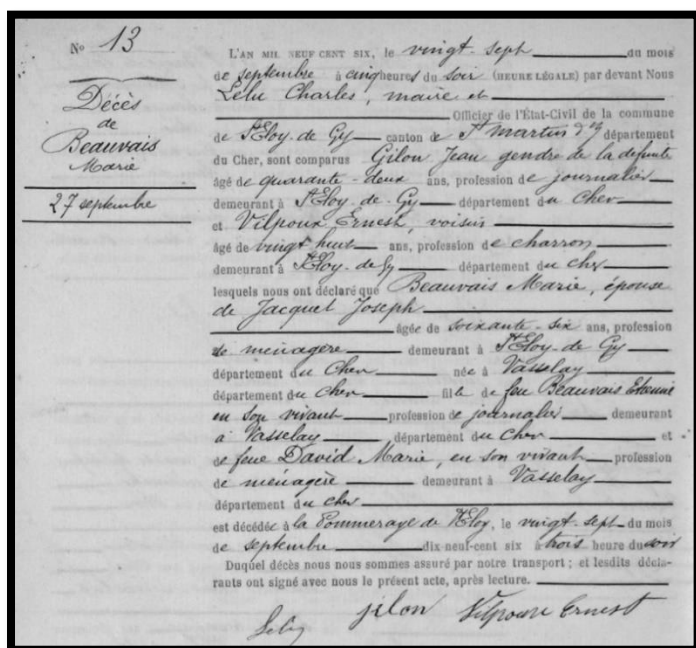 No 13
Décès
de
Beauvais
Marie
27 septembre
L'AN MIL NEUF CENT SIX, le vingt-sept du mois
de septembre à cinq heures du soir (HEURE LÉGALE) par devant Nous
Lelu Charles, maire et
Officier de l'État-Civil de la commune
de St Eloy-de-Gy canton de St Martin d'A département
du Cher, sont comparus Gilon Jean gendre de la défunte
âgé de quarante-deux ans, profession de journalier
demeurant à St Eloy-de-Gy département du Cher
et Vilpoux Ernest, voisin
âgé de vingt huit ans, profession de charron
demeurant à St Eloy-de-Gy département du Cher
lesquels nous ont déclaré que Beauvais Marie, épouse
de Jacquet Joseph
âgée de soixante-six ans, profession
de ménagère demeurant à St Eloy-de-Gy
département du Cher née à Vasselay
département du Cher fille de feu Beauvais Etienne
en son vivant profession de journalier demeurant
à Vasselay, département du Cher et
de feue David Marie, en son vivant profession
de ménagère demeurant à Vasselay
département du Cher
est décédée à la Pommeraye de St Eloy, le vingt sept du mois
de septembre dix neuf-cent six à trois heure du soir
Duquel décès nous nous sommes assuré par notre transport ; et lesdits décla-
rants ont signé avec nous le présent acte, après lecture.
Lelu jilon Vilpoux Ernest